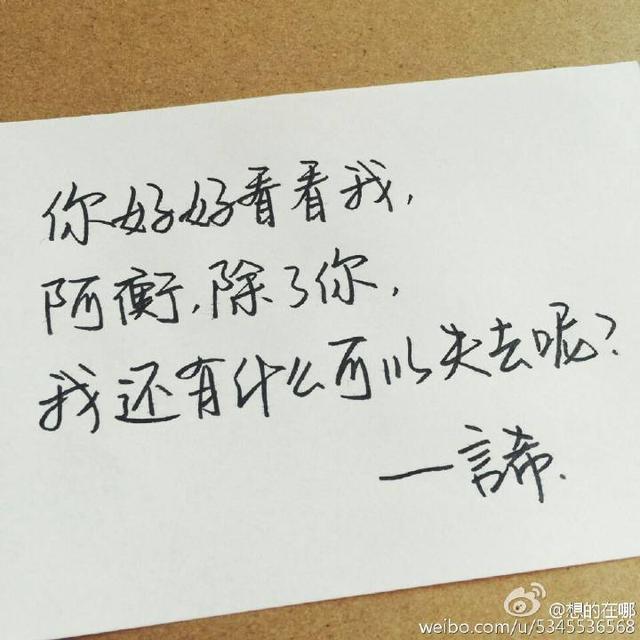 你好好看看我,
阿衡,除了你,
我还有什么可以失去呢?
一言希.
@想的在哪
weibo.com/u/5345536568